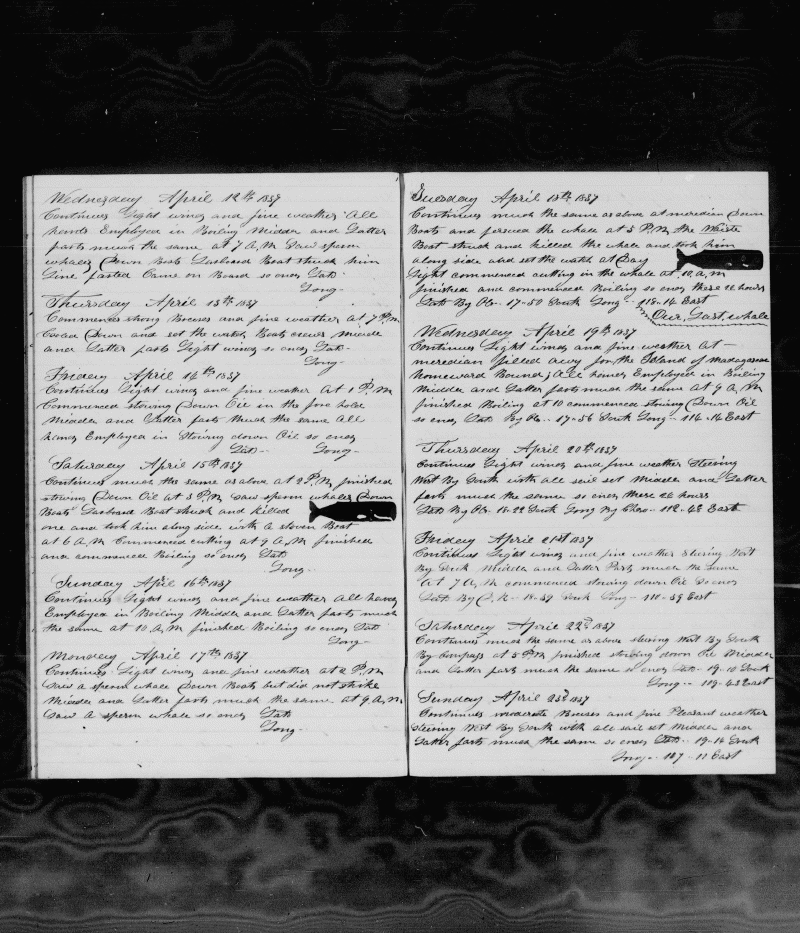 Wednesday April 12th 1837
Continues Light winds and fine weather All
hands Employed in Boiling Middle and Latter
parts much the same at 7 A,M Saw sperm
whales Down Boats Larboard Boat struck him
Line parted Came on Board so ends Lat-
Long-
Thursday April 13th 1837
Commences strong Breeses and fine weather at 7 P,M
Down and set the watch Boats crews Middle
and Latter parts Light winds so ends Lat-
Long-
Friday April 14th 1837
Continues Light winds and fine weather At 1 P,M
Commenced stowing Down Oil in the fore hold
Middle and Latter parts Much the same All
hands Employed in Stowing down Oil so ends
Lat- Long-
Saturday April 15th 1837
Continues much the same as above at 2 P,M finished
stowing Down Oil at 3 P,M Saw sperm whales Down
Boats Larboard Boat struck and killed
one and took him along side with A stoven Boat
at 6 A,M Commenced cutting at 9 A,M finished
and commenced Boiling so ends Lat
Long-
Sunday April 16th 1837
Continues Light winds and fine weather All hands
Employed in Boiling Middle and Latter parts much
the same at 10 A,M finished Boiling so ends Lat
Long-
Monday April 17th 1837
Continues Light winds and fine weather at 2 P,M
Saw a sperm whale Down Boats but did not strike
Middle and Latter parts much the same at 9 A,M
Saw A sperm whale so ends Lat
Long-
Tuesday April 18th 1837
Continues much the same as above at meredian Down
Boats and persued the whale at 5 P,M the Waiste
Boat struck and killed the whale and took him
along side and set the watch at Day
Light commenced cutting in the whale at 10, A, M
finished and commenced Boiling so ends these 24 hours
Lat By Ob- 17-50 South Long- 118-14 East
Our, Last, whale
Wednesday April 19th 1837
Continues Light winds and fine weather at-
meredian filled away for the Island of Madagascar
homeward Bound, All hands Employed in Boiling
Middle and Latter parts much the same at 9 A, M
finished Boiling at 10 commenced stowing Down Oil
so ends Lat By Ob- 17-56 South Long- 114-14 East
Thursday April 20th 1837
Continues Light winds and fine weather Steering
West By South with all sail set Middle and Latter
parts much the same so ends these 24 hours
Lat By Ob- 18-22 South Long By Chro- 112-42 East
Friday April 21st 1837
Continues Light winds and fine weather Steering West
By South Middle and Latter Parts much the same
At 7 A, M commenced stowing down Oil So ends
Lat By 18-39 South Long- 110-39 East
Saturday April 22nd 1837
Continues much the same as above steering West By South
By Compass at 5 P,M finished stowing down Oil Middle
and Latter parts much the same so ends Lat- 19-10 South
Long- 109-43 East
Sunday April 23d 1837
Continues moderate Breeses and fine Pleasant weather
Steering West By South with all sail set Middle and
Latter parts much the same so ends Lat- 19-14 South
Long- 107-11 East